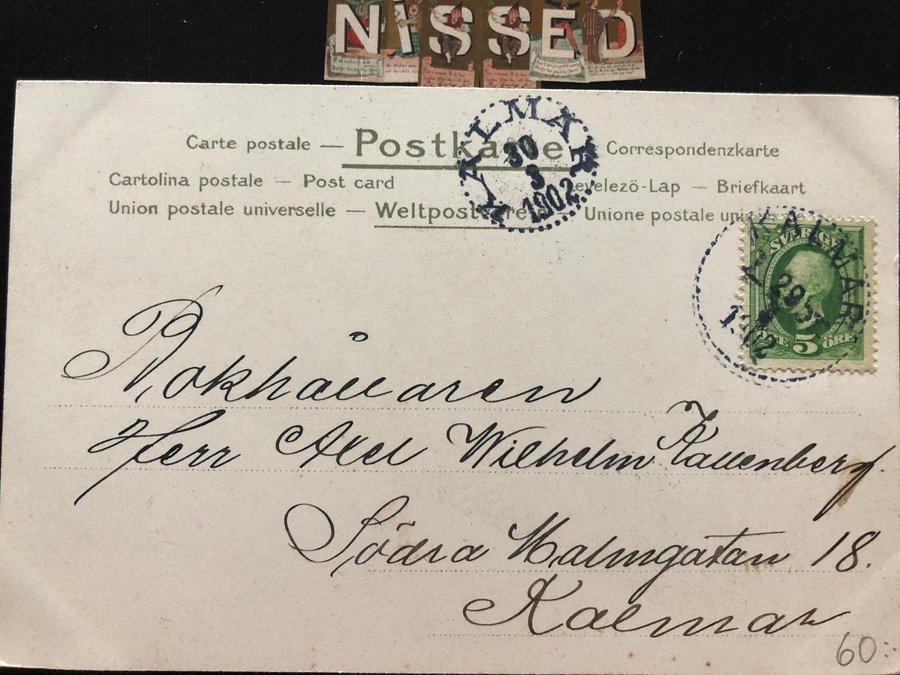 NISSED
Carte postale — Postkarte — Correspondenzkarte
Cartolina postale — Post card — Levelezö-Lap — Briefkaart
Union postale universelle — Weltpostverein — Unione postale
KALMAR
30
3
1902
SVERIGE
KALMAR
29 3
1902
5 ÖRE
Bokhållaren
Herr Axel Wilhelm Kallenberg.
Södra Malmgatan 18.
Kalmar
60:-